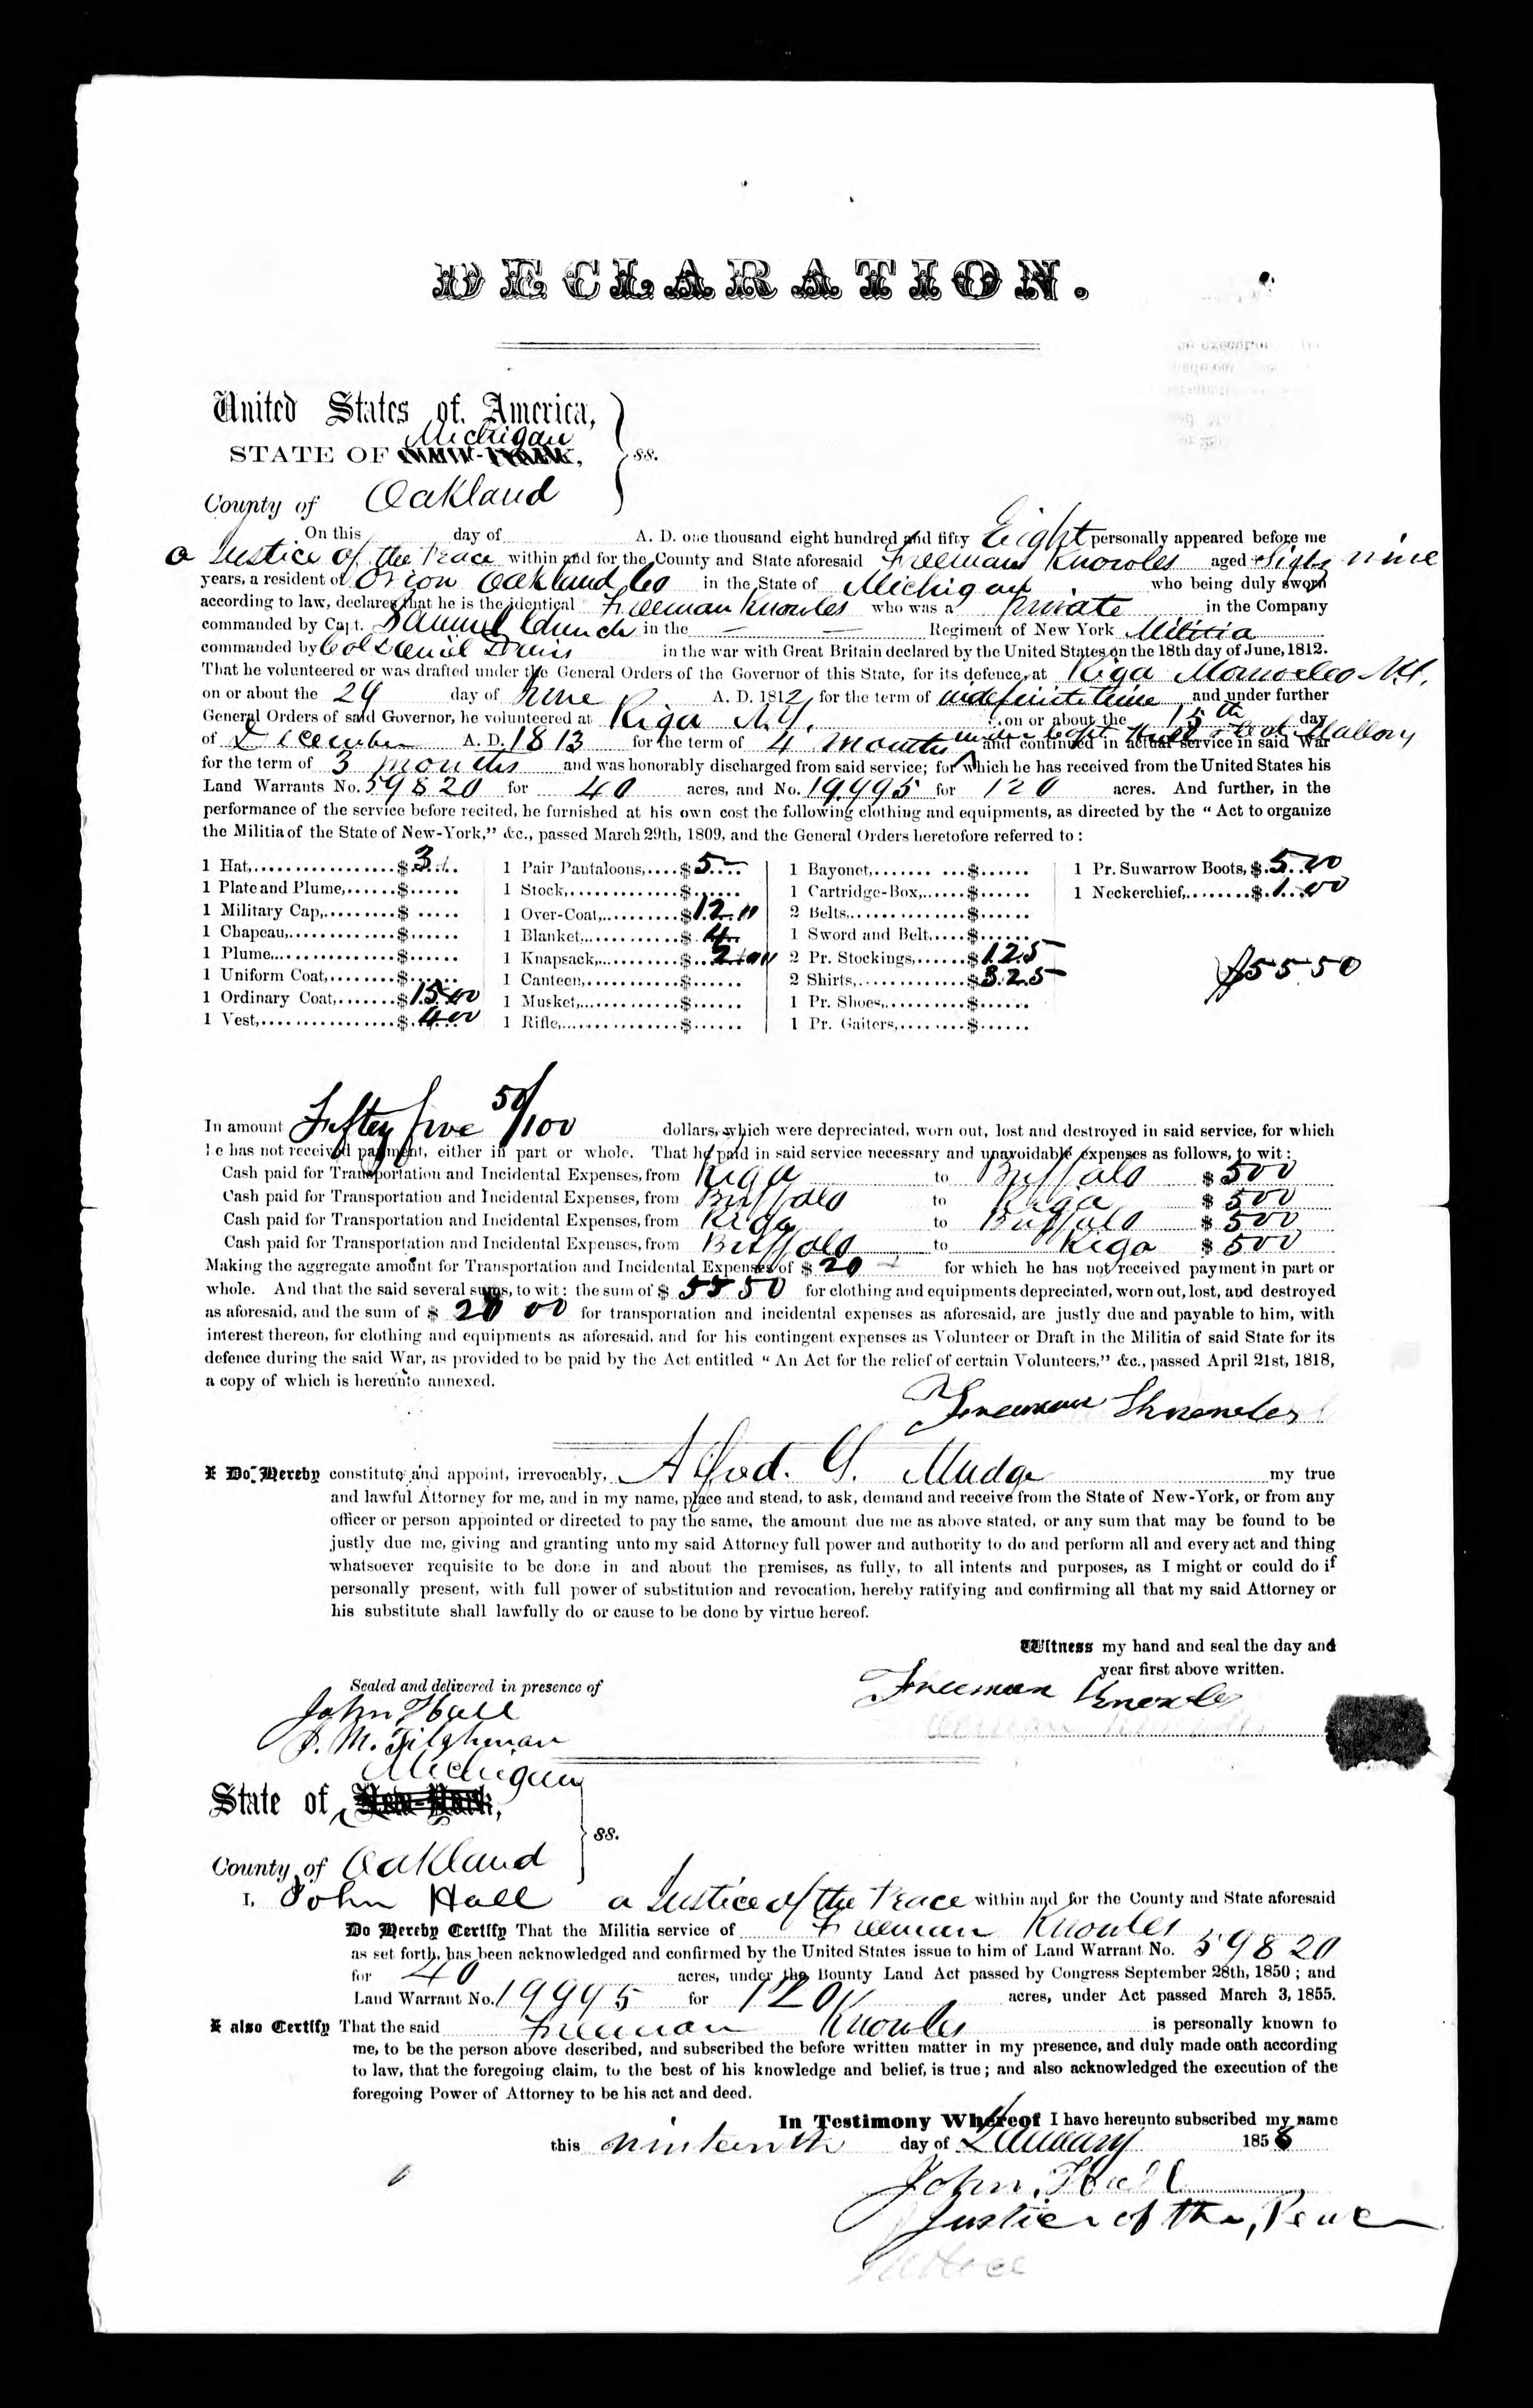 DECLARATION.
United States of America,
Michigan
STATE OF NEW-YORK, ss.
County of Oakland
On this day of A. D. one thousand eight hundred and fifty Eight personally appeared before me
a Justice of the Peace within and for the County and State aforesaid Freeman Knowles aged Sixty nine
years, a resident of Orion Oakland Co in the State of Michigan who being duly sworn
according to law, declares that he is the identical Freeman Knowles who was a private in the Company
commanded by Capt. Samuel Church in the — — Regiment of New York Militia
commanded by Col Daniel Davis in the war with Great Britain declared by the United States on the 18th day of June, 1812.
That he volunteered or was drafted under the General Orders of the Governor of this State, for its defence, at Riga Monroe Co N.Y.
on or about the 29 day of June A. D. 1812 for the term of indefinite time and under further
General Orders of said Governor, he volunteered at Riga N.Y. on or about the 15th day
under Capt & Col Mallory
of December A. D. 1813 for the term of 4 months and continued in actual service in said War
for the term of 3 months and was honorably discharged from said service; for which he has received from the United States his
Land Warrants No. 59820 for 40 acres, and No. 19995 for 120 acres. And further, in the
performance of the service before recited, he furnished at his own cost the following clothing and equipments, as directed by the “ Act to organize
the Militia of the State of New-York,” &c., passed March 29th, 1809, and the General Orders heretofore referred to :
1 Hat, $ 3
1 Plate and Plume, $
1 Military Cap, $
1 Chapeau, $
1 Plume $
1 Uniform Coat, $
1 Ordinary Coat, $ 15.00
1 Vest, $ 4.00
1 Pair Pantaloons, $ 5 –
1 Stock, $
1 Over-Coat, $ 12.00
1 Blanket, $ 4
1 Knapsack, $ 2.00
1 Canteen, $
1 Musket, $
1 Rifle, $
1 Bayonet, $
1 Cartridge-Box, $
2 Belts, $
1 Sword and Belt, $
2 Pr. Stockings, $ 1.25
2 Shirts, $ 3.25
1 Pr. Shoes, $
1 Pr. Gaiters, $
1 Pr. Suwarrow Boots, $ 5.00
1 Neckerchief, $ 1.00
$55 50
In amount Fiftey five 50/100 dollars, which were depreciated, worn out, lost and destroyed in said service, for which
he has not received payment, either in part or whole. That he paid in said service necessary and unavoidable expenses as follows, to wit :
Cash paid for Transportation and Incidental Expenses, from Riga to Buffalo $ 500
Cash paid for Transportation and Incidental Expenses, from Buffalo to Riga $ 500
Cash paid for Transportation and Incidental Expenses, from Riga to Buffalo $ 500
Cash paid for Transportation and Incidental Expenses, from Buffalo to Riga $ 500
Making the aggregate amount for Transportation and Incidental Expenses of $ 20 for which he has not received payment in part or
whole. And that the said several sums, to wit : the sum of $ 55 50 for clothing and equipments depreciated, worn out, lost, and destroyed
as aforesaid, and the sum of $ 20 00 for transportation and incidental expenses as aforesaid, are justly due and payable to him, with
interest thereon, for clothing and equipments as aforesaid, and for his contingent expenses as Volunteer or Draft in the Militia of said State for its
defence during the said War, as provided to be paid by the Act entitled “ An Act for the relief of certain Volunteers,” &c., passed April 21st, 1818,
a copy of which is hereunto annexed.
Freeman Knowles
I Do Hereby constitute and appoint, irrevocably, Alfred. G. Mudge my true
and lawful Attorney for me, and in my name, place and stead, to ask, demand and receive from the State of New-York, or from any
officer or person appointed or directed to pay the same, the amount due me as above stated, or any sum that may be found to be
justly due me, giving and granting unto my said Attorney full power and authority to do and perform all and every act and thing
whatsoever requisite to be done in and about the premises, as fully, to all intents and purposes, as I might or could do if
personally present, with full power of substitution and revocation, hereby ratifying and confirming all that my said Attorney or
his substitute shall lawfully do or cause to be done by virtue hereof.
Witness my hand and seal the day and
year first above written.
Sealed and delivered in presence of
Freeman Knowles
John Hall
J. M. Tilghman
Michigan
State of New-York, ss.
County of Oakland
I, John Hall a Justice of the Peace within and for the County and State aforesaid
Do Hereby Certify That the Militia service of Freeman Knowles
as set forth, has been acknowledged and confirmed by the United States issue to him of Land Warrant No. 59820
for 40 acres, under the Bounty Land Act passed by Congress September 28th, 1850 ; and
Land Warrant No. 19995 for 120 acres, under Act passed March 3, 1855.
I also Certify That the said Freeman Knowles is personally known to
me, to be the person above described, and subscribed the before written matter in my presence, and duly made oath according
to law, that the foregoing claim, to the best of his knowledge and belief, is true ; and also acknowledged the execution of the
foregoing Power of Attorney to be his act and deed.
In Testimony Whereof I have hereunto subscribed my name
this ninteenth day of January 1858
John Hall
Justice of the Peace